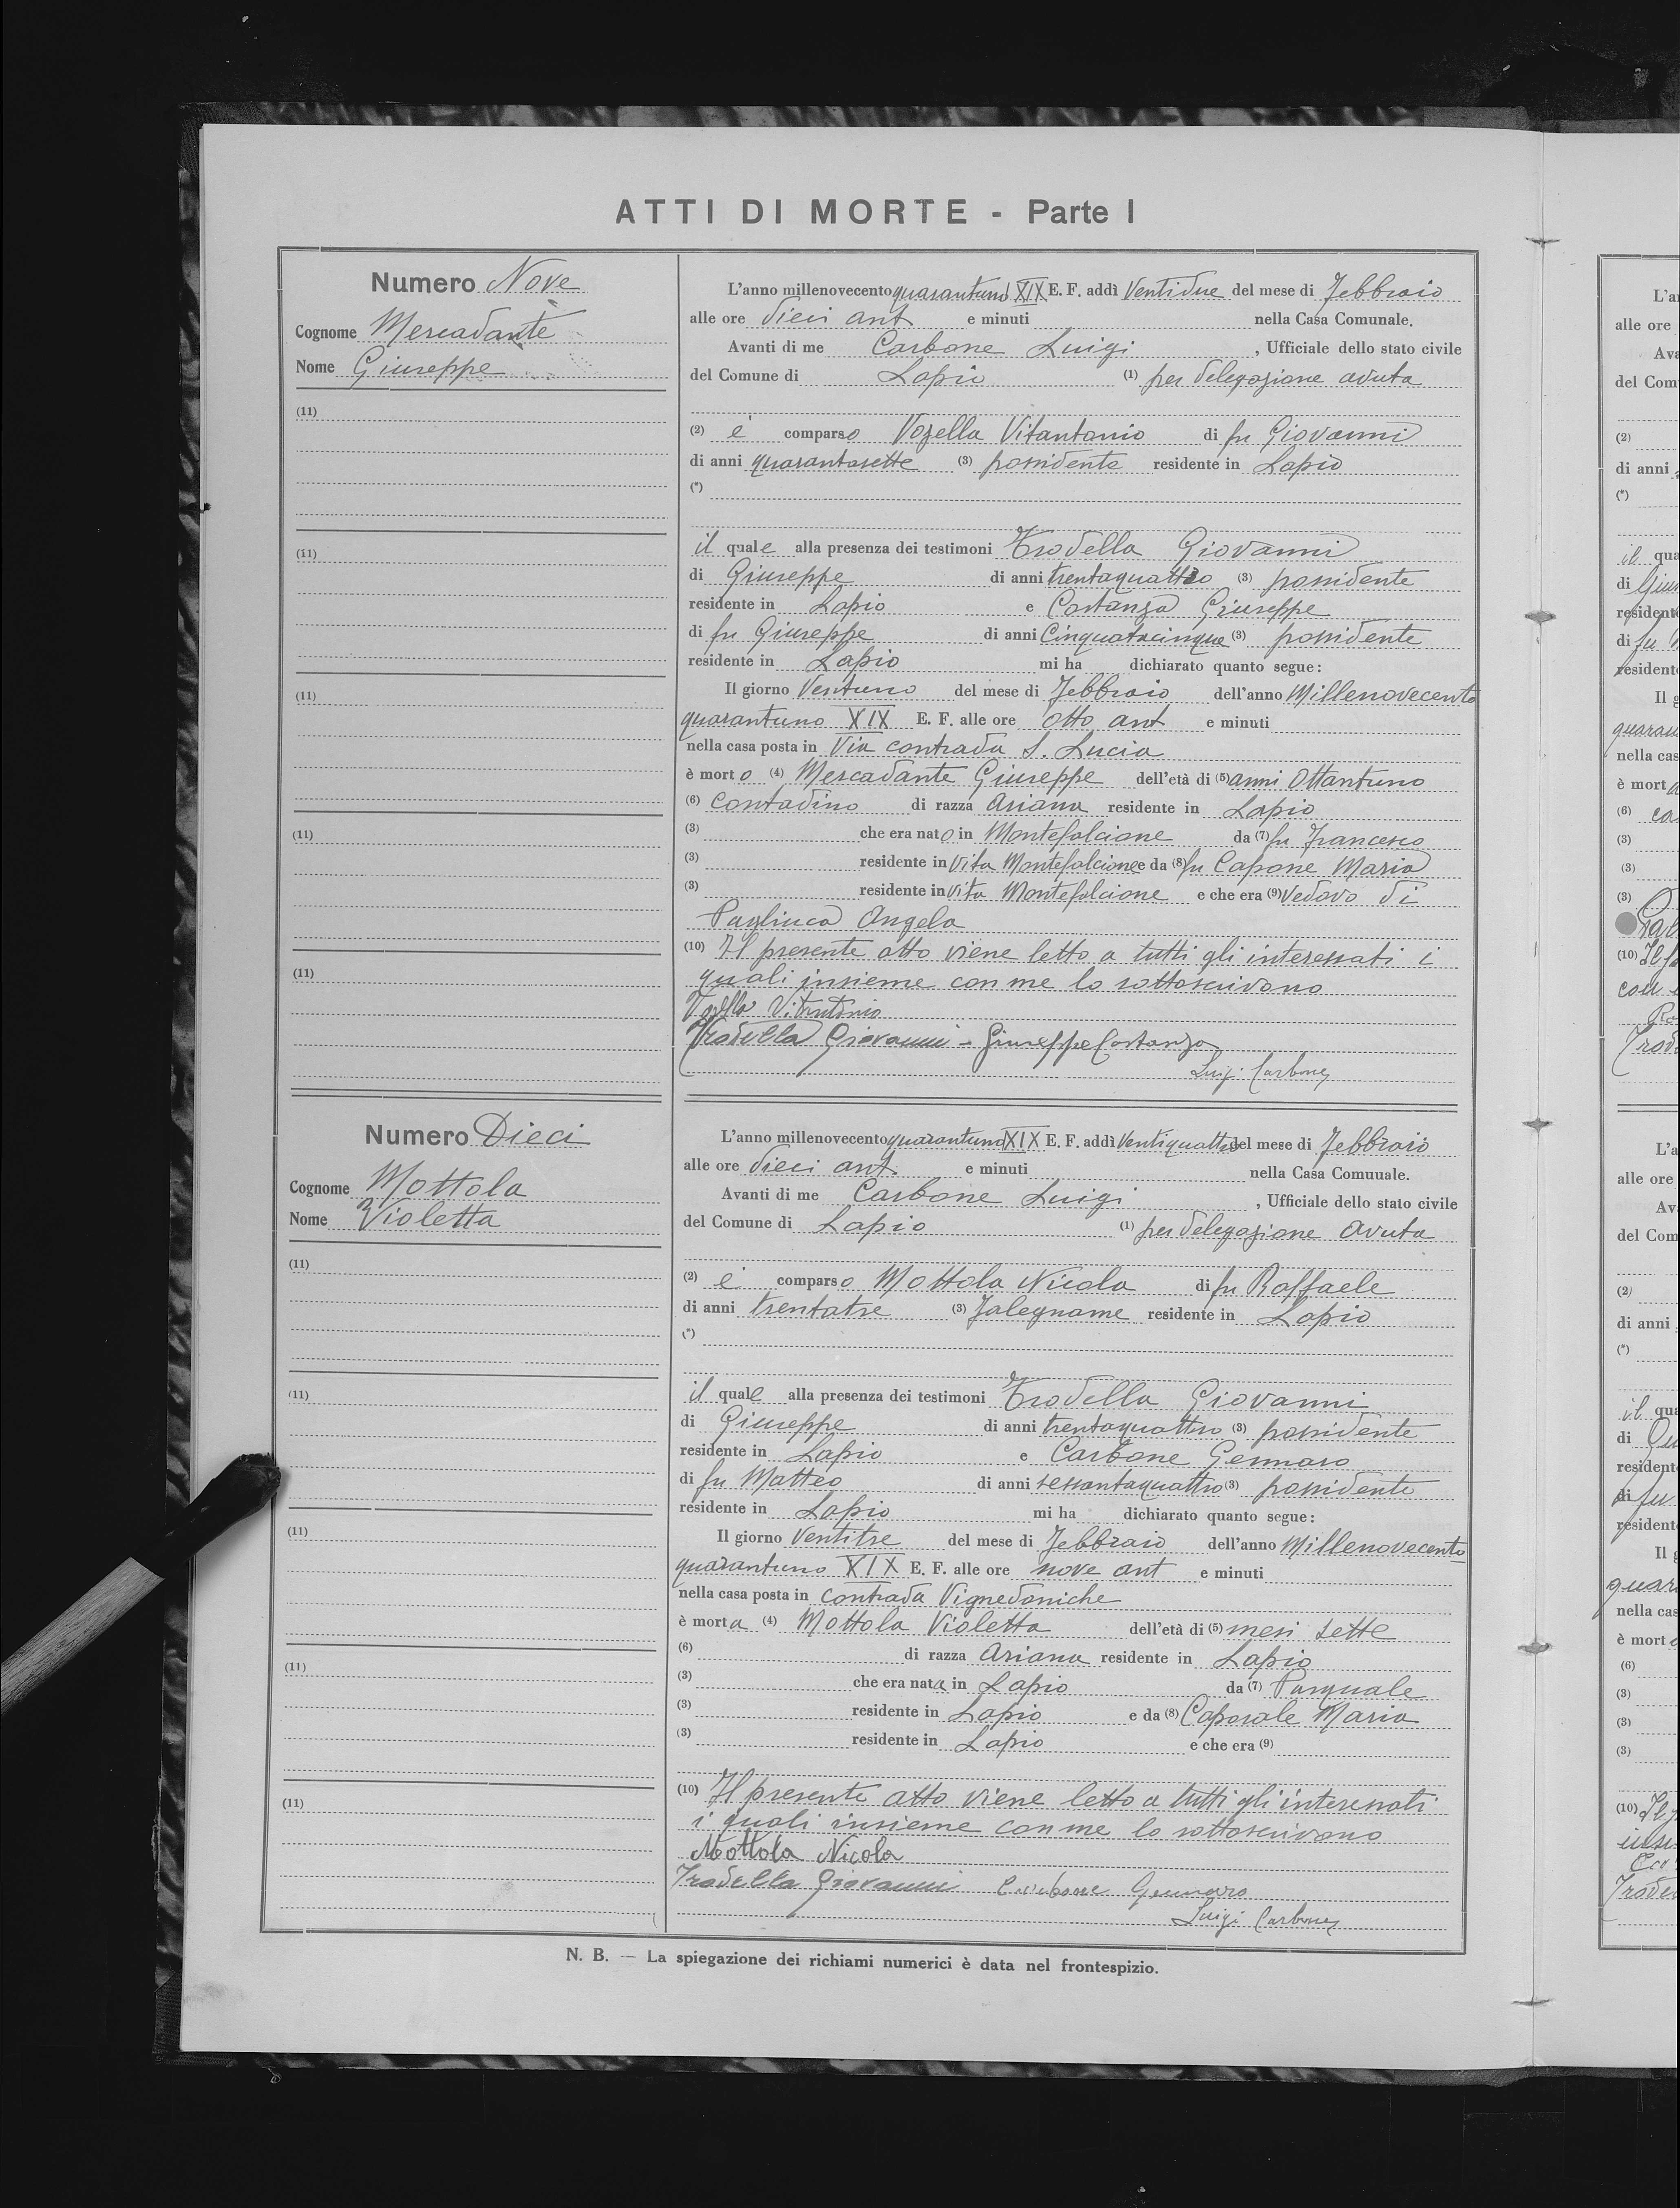 ATTI DI MORTE - Parte I
Numero Nove
Cognome Mercadante
Nome Giuseppe
(11)
(11)
(11)
(11)
(11)
L'anno millenovecentoquarantuno XIX E. F. addì Ventidue del mese di Febbraio
alle ore dieci ant e minuti nella Casa Comunale.
Avanti di me Carbone Luigi , Ufficiale dello stato civile
del Comune di Lapio (1) per delegazione avuta
(2) è comparso Vozella Vitantonio di fu Giovanni
di anni quarantasette (3) possidente residente in Lapio
(*)
il quale alla presenza dei testimoni Trodella Giovanni
di Giuseppe di anni trentaquattro (3) possidente
residente in Lapio e Costanza Giuseppe
di fu Giuseppe di anni Cinquatacinque (3) possidente
residente in Lapio mi ha dichiarato quanto segue:
Il giorno Ventuno del mese di Febbraio dell'anno Millenovecento
quarantuno XIX E. F. alle ore otto ant e minuti
nella casa posta in Via contrada S. Lucia
è morto (4) Mercadante Giuseppe dell'età di (5) anni Ottantuno
(6) Contadino di razza Ariana residente in Lapio
(3) che era nato in Montefalcione da (7) fu Francesco
(3) residente in Vita Montefalcione e da (8) fu Capone Maria
(3) residente in Vita Montefalcione e che era (9) Vedovo di
Pagliuca Angela
(10) Il presente atto viene letto a tutti gli interessati i
quali insieme con me lo sottoscrivono
Vozella Vitantonio
Trodella Giovanni - Giuseppe Costanza
Luigi Carbone
Numero Dieci
Cognome Mottola
Nome Violetta
(11)
(11)
(11)
(11)
(11)
L'anno millenovecentoquarantuno XIX E. F. addì Ventiquattro del mese di Febbraio
alle ore dieci ant. e minuti nella Casa Comuuale.
Avanti di me Carbone Luigi , Ufficiale dello stato civile
del Comune di Lapio (1) per delegazione avuta
(2) è comparso Mottola Nicola di fu Raffaele
di anni trentatre (3) Falegname residente in Lapio
(*)
il quale alla presenza dei testimoni Trodella Giovanni
di Giuseppe di anni trentaquattro (3) possidente
residente in Lapio e Carbone Gennaro
di fu Matteo di anni sessantaquattro (3) possidente
residente in Lapio mi ha dichiarato quanto segue:
Il giorno Ventitre del mese di Febbraio dell'anno Millenovecento
quarantuno XIX E. F. alle ore nove ant e minuti
nella casa posta in contrada Vignedoniche
è morta (4) Mottola Violetta dell'età di (5) mesi sette
(6) di razza Ariana residente in Lapio
(3) che era nata in Lapio da (7) Pasquale
(3) residente in Lapio e da (8) Caporale Maria
(3) residente in Lapio e che era (9)
(10) Il presente atto viene letto a tutti gli interessati
i quali insieme con me lo sottoscrivono
Mottola Nicola
Trodella Giovanni Carbone Gennaro
Luigi Carbone
N. B. — La spiegazione dei richiami numerici è data nel frontespizio.